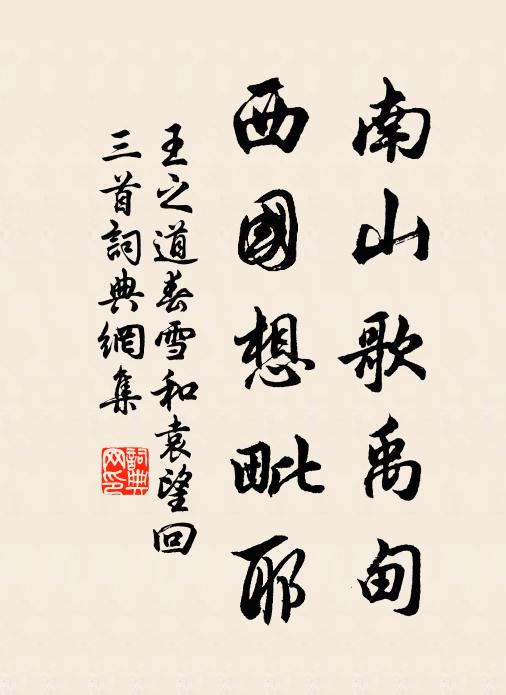 南山歌禹甸
西國想毗耶
王之道春雪和袁望回
三首詞典網集
詞典網印